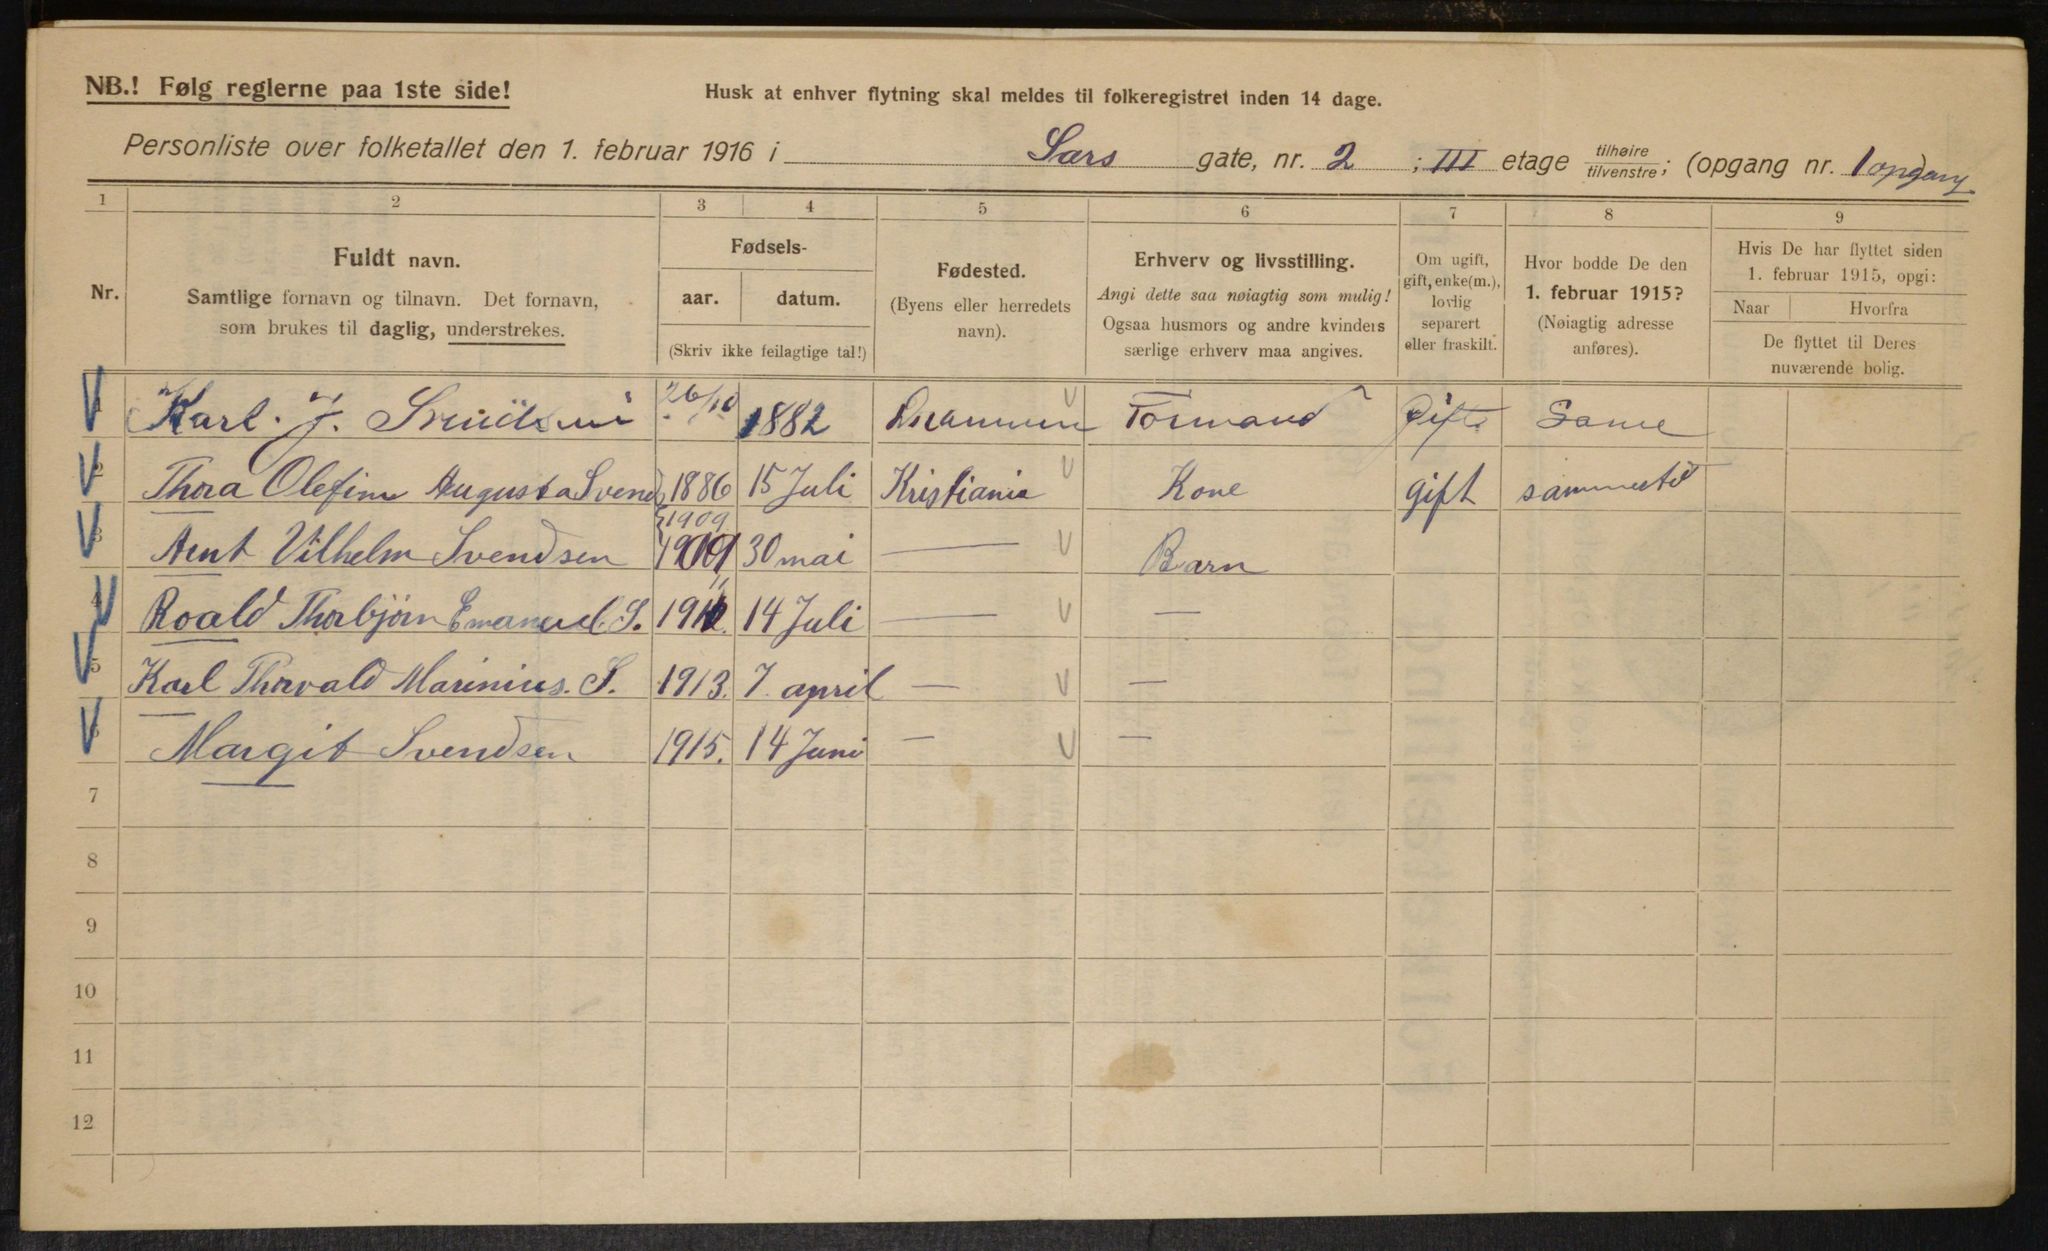 NB.! Følg reglerne paa 1ste side!
Husk at enhver flytning skal meldes til folkeregistret inden 14 dage.
Personliste over folketallet den 1. februar 1916 i Sars gate, nr. 2 ; III etage tilhøire tilvenstre; (opgang nr. 1 opgang
1 2 3 4 5 6 7 8 9
Nr.
Fuldt navn.
Samtlige fornavn og tilnavn. Det fornavn,
som brukes til daglig, understrekes.
Fødsels-
aar. datum.
(Skriv ikke feilagtige tal!)
Fødested.
(Byens eller herredets
navn).
Erhverv og livsstilling.
Angi dette saa nøiagtig som mulig!
Ogsaa husmors og andre kvinders
særlige erhverv maa angives.
Om ugift,
gift, enke(m.),
lovlig
separert
eller fraskilt.
Hvor bodde De den
1. februar 1915?
(Nøiagtig adresse
anføres).
Hvis De har flyttet siden
1. februar 1915, opgi:
Naar Hvorfra
De flyttet til Deres
nuværende bolig.
1 Karl. J. Svendsen 26/10 1882 Drammen Formand Gift Same
2 Thora Olefine Augusta Svend 1886 15 Juli Kristiania Kone gift sammested
1909
3 Arnt Vilhelm Svendsen 1909 30 mai — Barn
4 Roald Thorbjörn Emanuel. S. 191 14 Juli — —
5 Karl Thorvald Marinius. S. 1913. 7. april — —
6 Margit Svendsen 1915. 14 Juni — —
7
8
9
10
11
12